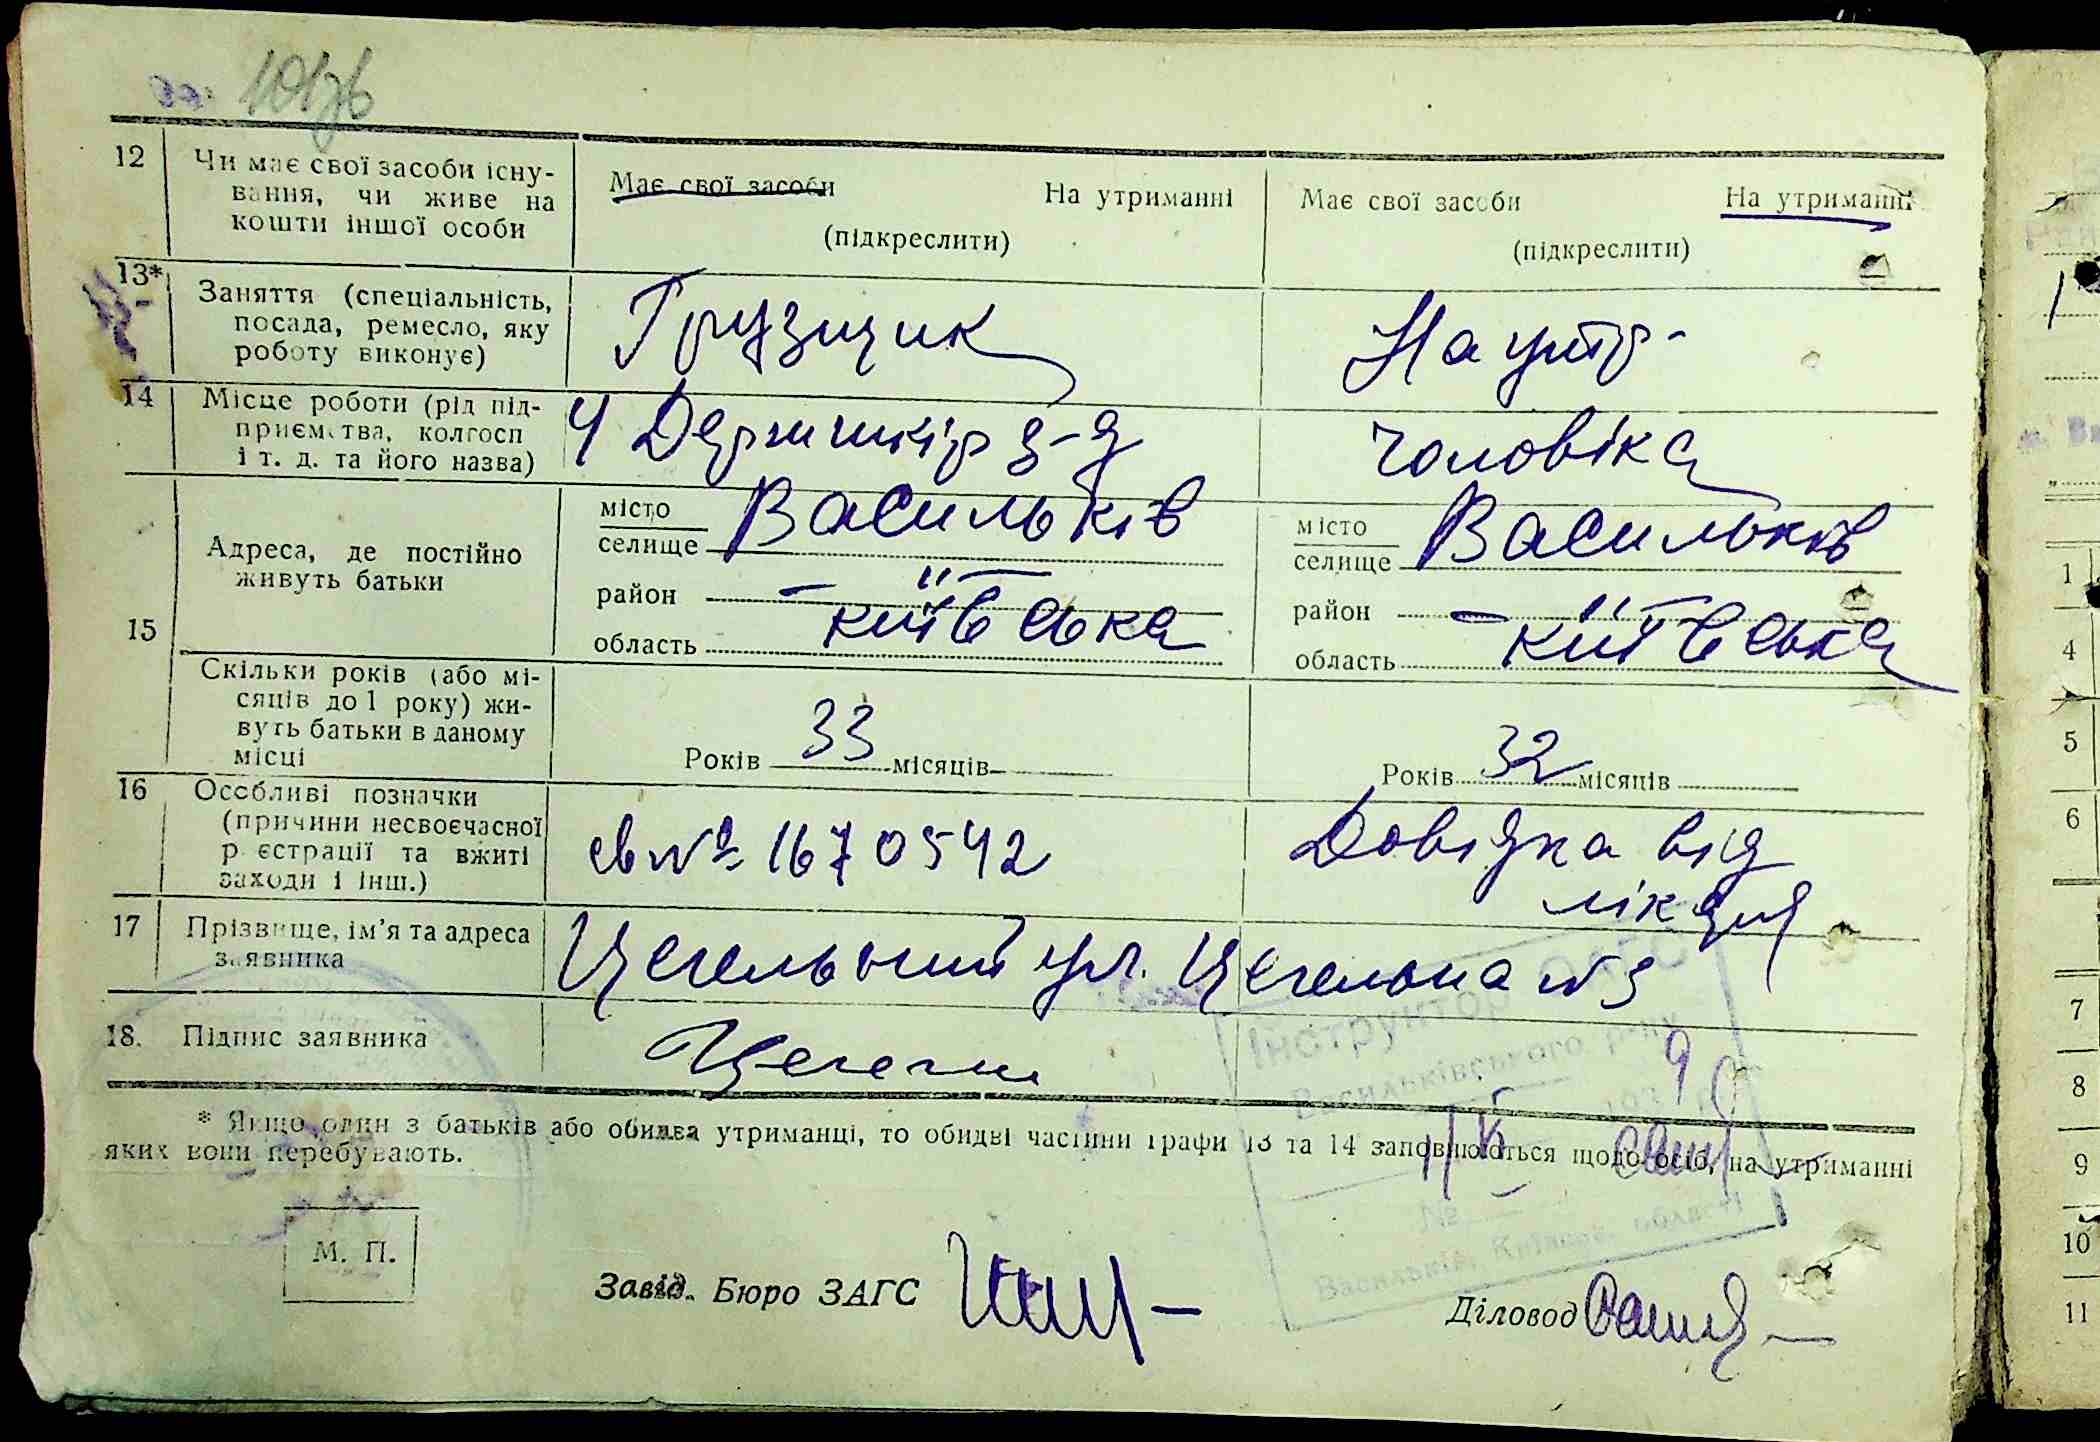 101зв
12 Чи має свої засоби існу-
вання, чи живе на
кошти іншої особи
Має свої засоби На утриманні
(підкреслити)
Має свої засоби На утриманні
(підкреслити)
13* Заняття (спеціальність,
посада, ремесло, яку
роботу виконує)
Грузщик
На утр-
14 Місце роботи (рід під-
приємства, колгосп
і т. д. та його назва)
Ч Держшкір з-д
чоловіка
15 Адреса, де постійно
живуть батьки
місто
селище Васильків
район –
область київська
місто
селище Васильків
район –
область київська
Скільки років (або мі-
сяців до 1 року) жи-
вуть батьки в даному
місці
Років 33 місяців
Років 32 місяців
16 Особливі позначки
(причини несвоєчасної
реєстрації та вжиті
заходи і інш.)
св № 1670542
Довідка від
лікаря
17 Прізвище, ім'я та адреса
заявника
Цегельний ул. Цегельна №3
18. Підпис заявника
* Якщо один з батьків або обидва утриманці, то обидві частини графи 13 та 14 заповнюються щодо осіб, на утриманні
яких вони перебувають.
Інструктор ЗАГС
Васильківського р-ну
№
Васильків, Київськ. області
М. П.
Завід. Бюро ЗАГС
Діловод
1
4
5
6
7
8
9
10
11